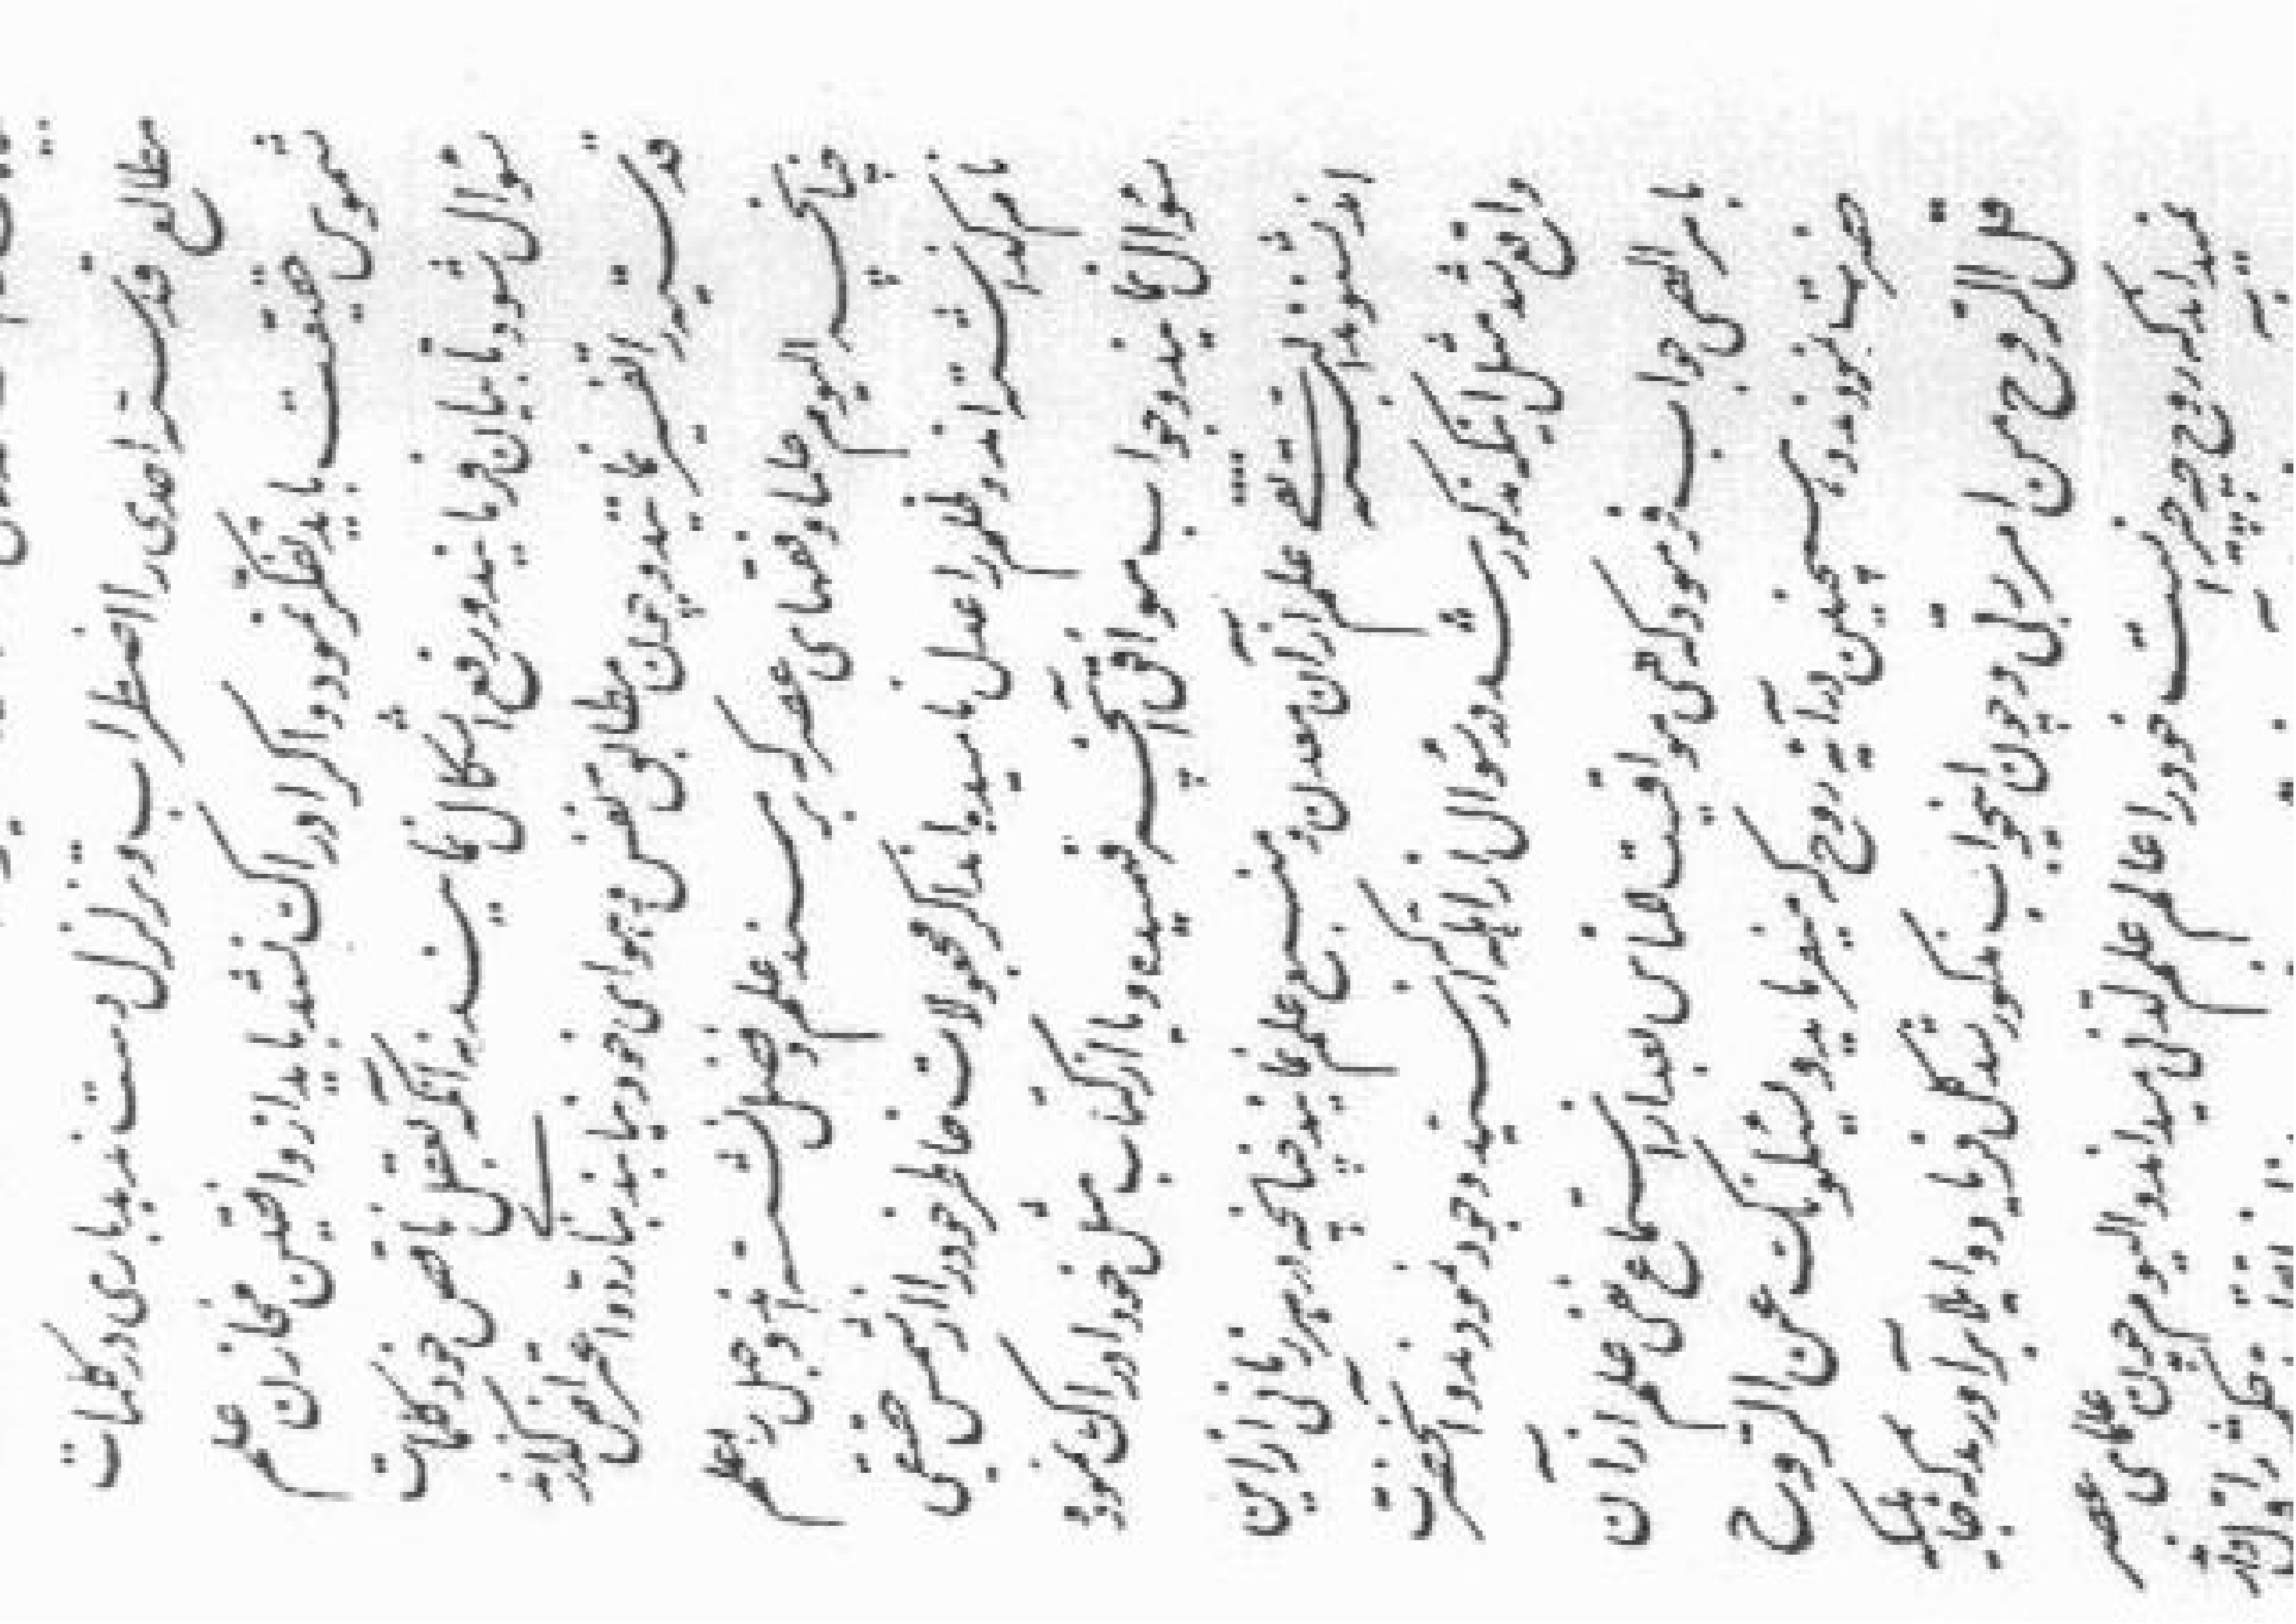 مطالع قدسیّه احدی را اضطراب و تزلزل دست ندهد باری در کلمات
شموس حقیقت باید تفکر نمود و اگر ادراک نشد باید از واقفین مخازن علم
سؤال شود تا بیان فرمایند و رفع اشکال نمایند نه آنکه بعقل ناقص خود کلمات
قدسیّه را تفسیر نمایند و چون مطابق نفس و هوای خود نیابند بنای ردّ و اعتراض گذارند
چنانچه الیوم علما و فقهای عصر که بر مسند علم و فضل نشسته‌اند و جهل را علم
نام گذاشته‌اند و ظلم را عدل نامیده‌اند اگر از مجعولات خاطر خود از شمس حقیقی
سؤال نمایند و جواب موافق آنچه فهمیده و یا از کتاب مثل خود ادراک نموده
اند نشنوند البتّه نفی علم از آن معدن و منبع علم نمایند چنانچه در هر زمان این
واقع شد مثل اینکه مذکور شد در سؤال از اهلّه که از سیّد وجود نمودند و آنحضرت
بامر الهی جواب فرمود که هی مواقیت للناس بعد از استماع نفی علم از آن
حضرت نمودند و همچنین در آیه روح که میفرماید و یسئلونک عن الرّوح
قل الرّوح من امر ربّی و چون این جواب مذکور شد کلّ فریاد واویلا برآوردند که جاهلی که
نمیداند که روح چیست خود را عالم علم لدنّی میداند و الیوم چون علمای عصر